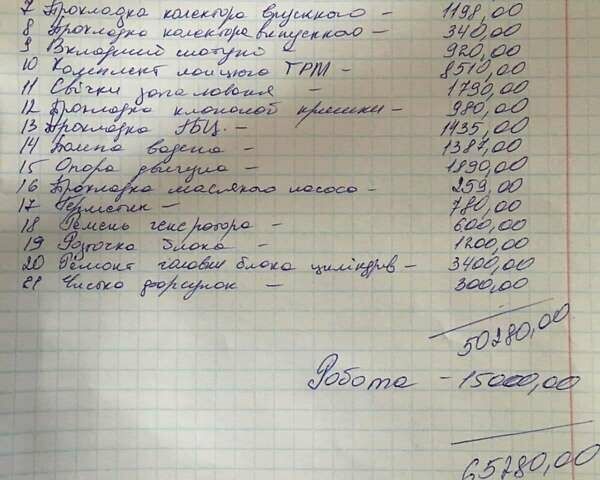 7 Прокладка колектора впускного - 1198,00
8 Прокладка колектора випускного - 340,00
9 Вкладиші шатуні - 920,00
10 Комплект ланцюга ГРМ - 8510,00
11 Свічки запалювання - 1790,00
12 Прокладка клапаной кришки - 980,00
13 Прокладка ГБЦ. - 1435,00
14 Помпа водяна - 1387,00
15 Опора двигуна - 1890,00
16 Прокладка масляного насоса - 259,00
17 Герметик - 780,00
18 Ремень генератора - 600,00
19 Расточка блока - 1200,00
20 Ремонт головки блока циліндрів - 3400,00
21 Чистка форсунок - 300,00
50280,00
Робота - 15000,00
65280,00